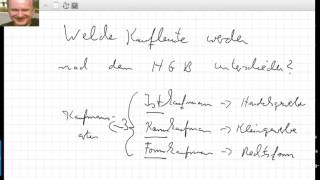 Welche Kaufleute werden
nach dem HGB unterschieden?
Kaufmanns-
arten
Istkaufmann → Handelsgewerbe
Kannkaufmann → Kleingewerbe
Formkaufmann → Rechtsform